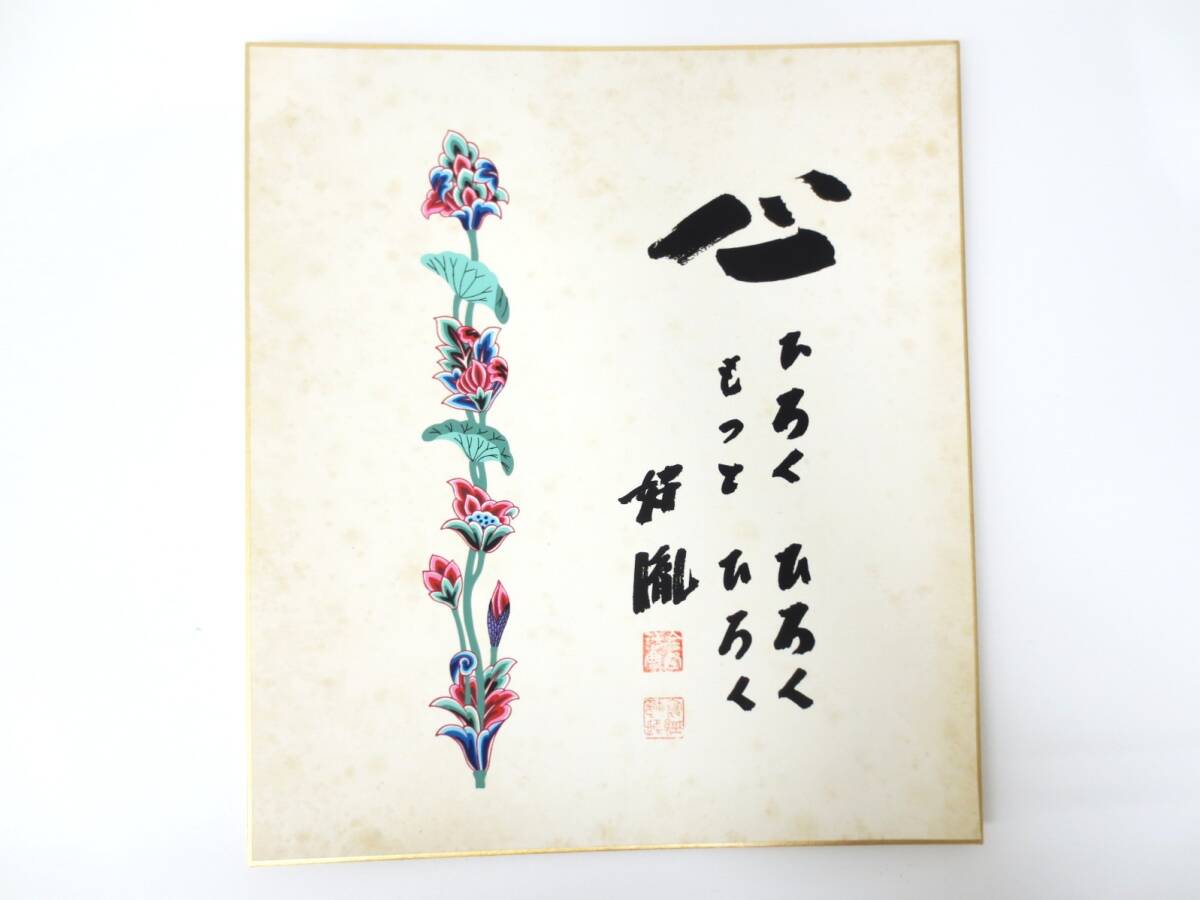 心
ひろく ひろく
もっと ひろく
好胤